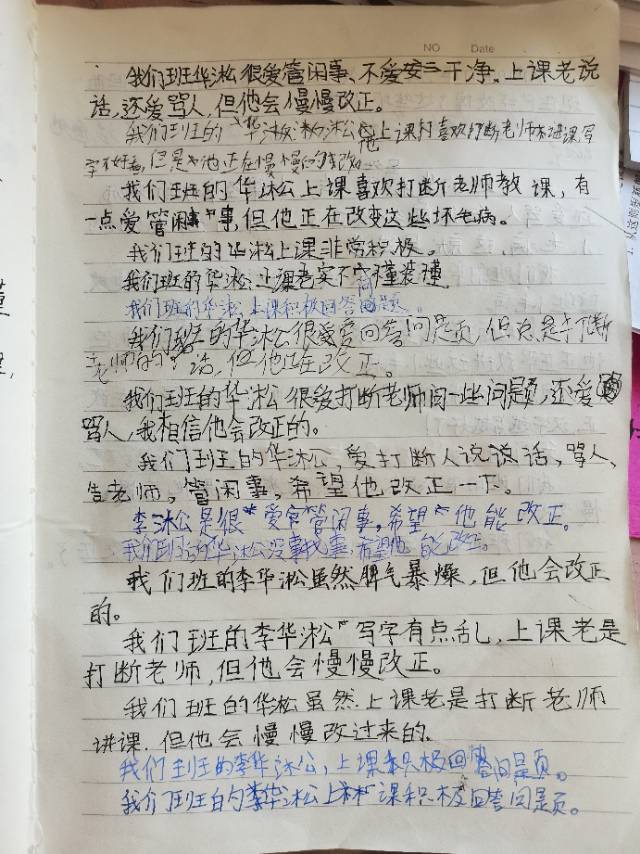 NO Date
我们班华淞很爱管闲事、不爱安二干净、上课老说
话,还爱骂人,但他会慢慢改正。
我们班的华淞他上课喜欢打断老师讲课,写
字不好看,但是他正在慢慢的改
我们班的华淞上课喜欢打断老师教课,有
一点爱管闲事,但他正在改变这些坏毛病。
我们班的华淞上课非常积极。
我们班的华淞上课老实不懂装懂
我们班的华淞上课积极回答问题。
我们班的华淞很爱回答问题,但总是打断
老师的话,但他在改正。
我们班的华淞很爱打断老师问一些问题,还爱
骂人,我相信他会改正的。
我们班的华淞,爱打断人说话,骂人,
告老师,管闲事,希望他改正一下。
李淞是很爱管闲事,希望他能改正。
我们班的华淞没事找事,希望他能改正。
我们班的李华淞虽然脾气暴燥,但他会改正
的。
我们班的李华淞写字有点乱,上课老是
打断老师,但他会慢慢改正。
我们班的华淞虽然上课老是打断老师
讲课.但他会慢慢改过来的.
我们班的李华淞,上课积极回答问题。
我们班的李华淞上课积极回答问题。